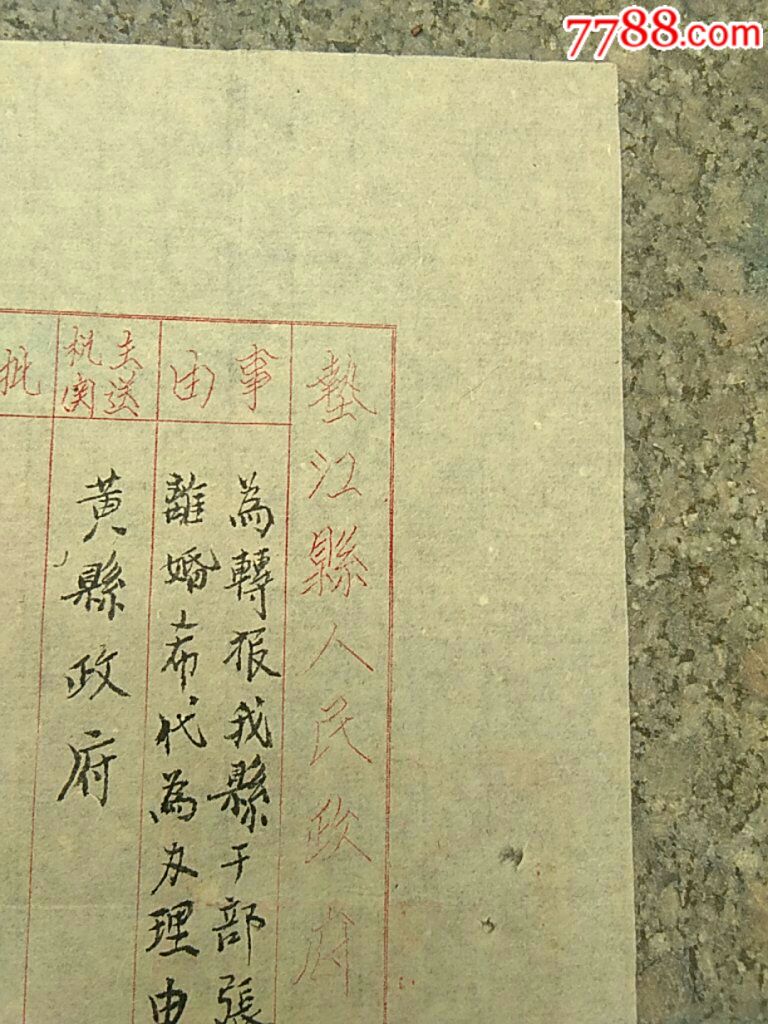 7788.com
墊江縣人民政府
事由
為轉报我縣干部張
離婚希代為办理由
主送
机関
黄縣政府
批